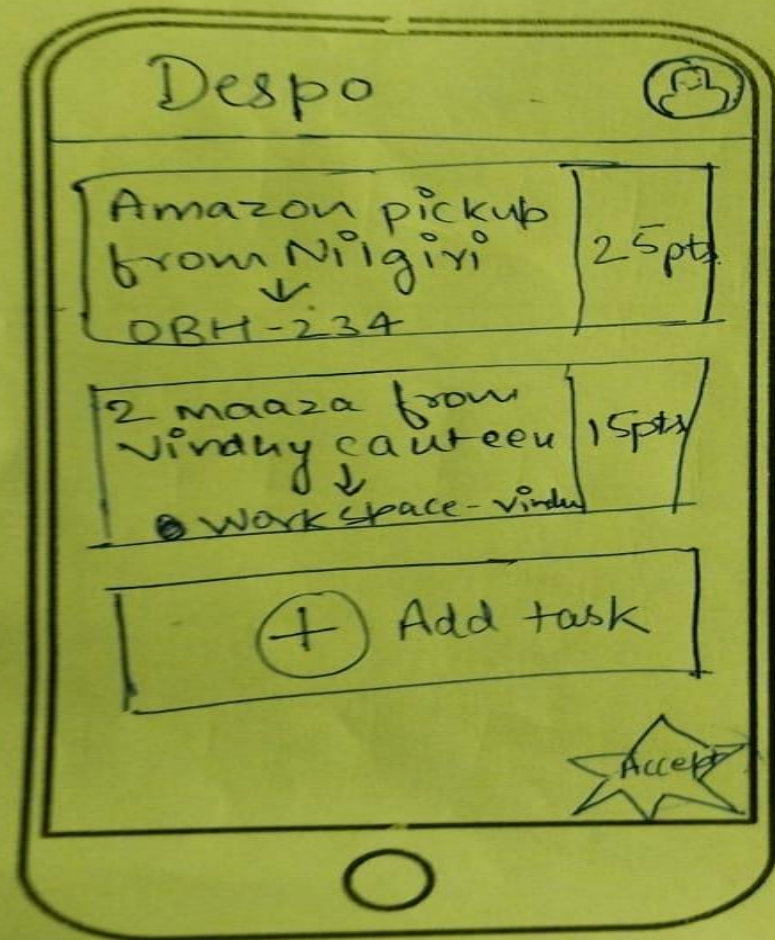 Despo
Amazon pickup
from Nilgiri
↓
OBH-234
25pts
2 maaza from
Vindhy canteen
↓
Workspace-Vindhy
15pts
+ Add task
Accept